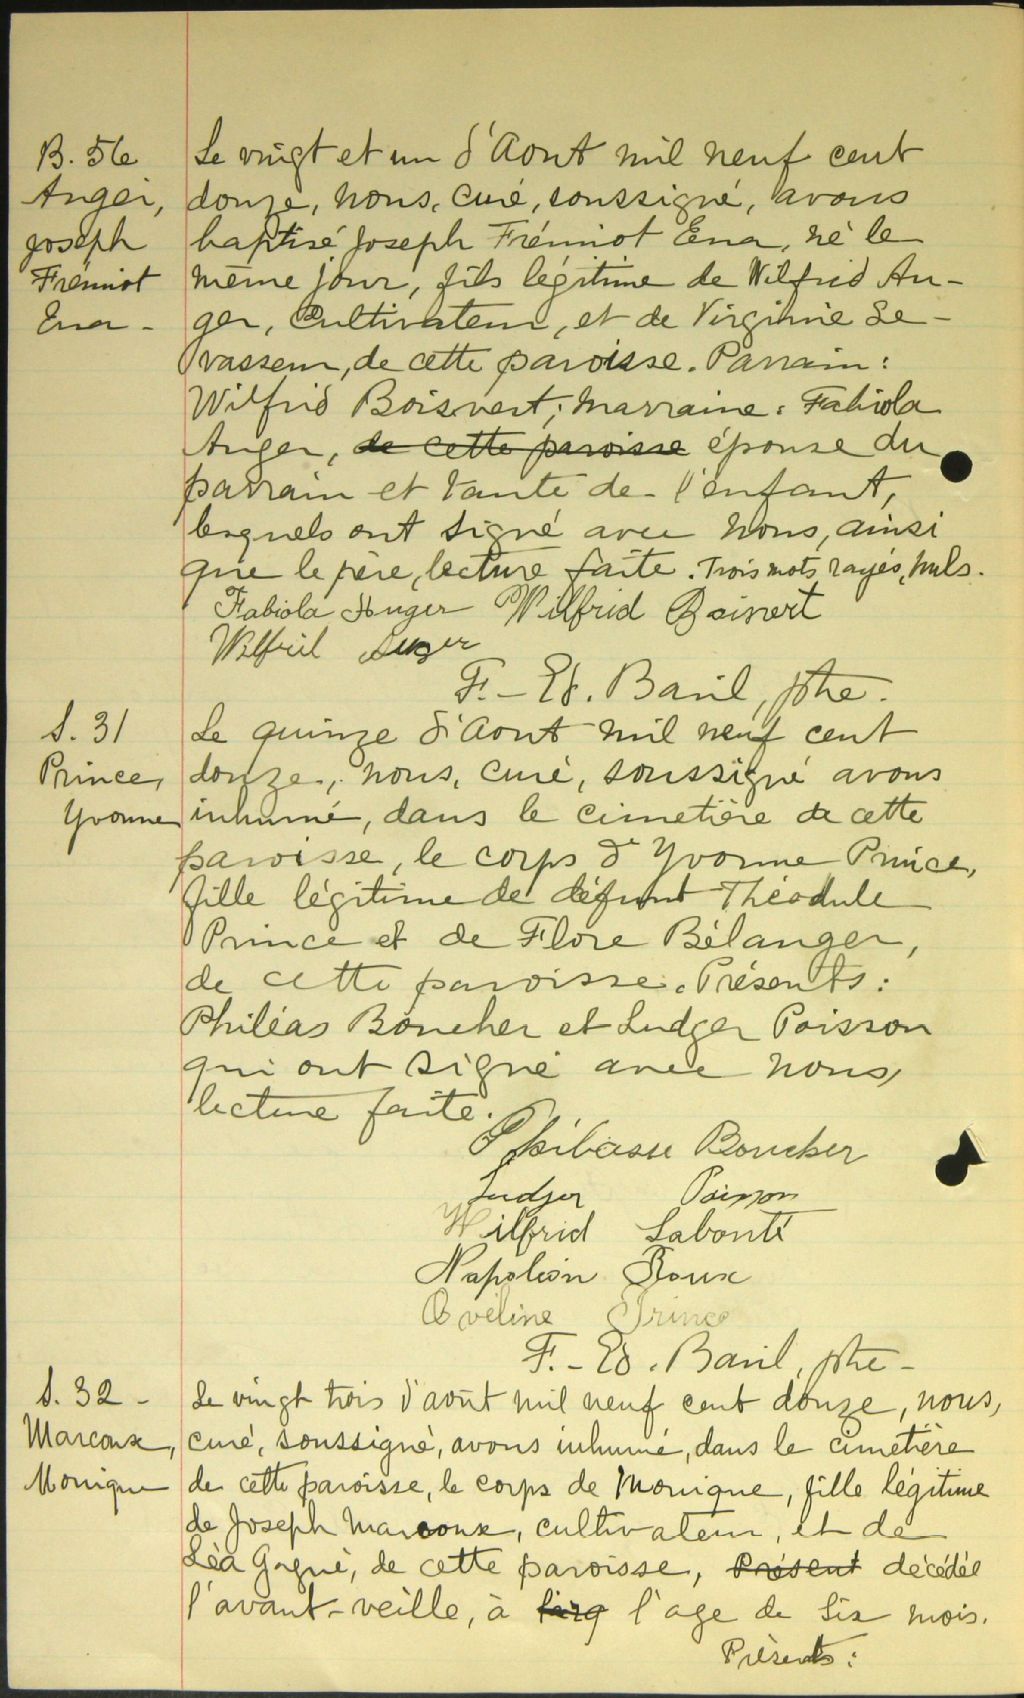 B. 56
Anger,
Joseph
Frémiot
Ena -
Le vingt et un d'Aout mil neuf cent
donze, nous, curé, soussigné, avons
baptisé Joseph Frémiot Ena, né le
même jour, fils légitime de Wilfrid An-
ger, Cultivateur, et de Virginie Le-
vasseur, de cette paroisse. Parrain:
Wilfrid Boisvert; Marraine: Fabiola
Anger, de cette paroisse épouse du
parrain et tante de l'enfant,
lesquels ont signé avec nous, ainsi
que le père, lecture faite. Trois mots rayés, nuls.
Fabiola Anger Wilfrid Boisvert
Wilfrid Auger
F. - Ed. Baril, ptre.
S. 31
Prince,
Yvonne
Le quinze d'Aout mil neuf cent
donze, nous, curé, soussigné avons
inhumé, dans le cimetière de cette
paroisse, le corps d'Yvonne Prince,
fille légitime de défunt Théodule
Prince et de Flore Bélanger,
de cette paroisse. Présents:
Philéas Boucher et Ludger Poisson
qui ont signé avec nous,
lecture faite.
Boucher
Ludger Poisson
Wilfrid Labonté
Napoléon Roux
Prince
F. - Ed. Baril, ptre -
S. 32 -
Marcoux,
Monique
Le vingt trois d'août mil neuf cent douze, nous,
curé, soussigné, avons inhumé, dans le cimetière
de cette paroisse, le corps de Monique, fille légitime
de Joseph Marcoux, cultivateur, et de
Léa Gagné, de cette paroisse, Présent décédée
l'avant-veille, à l'age de six mois.
Présents: